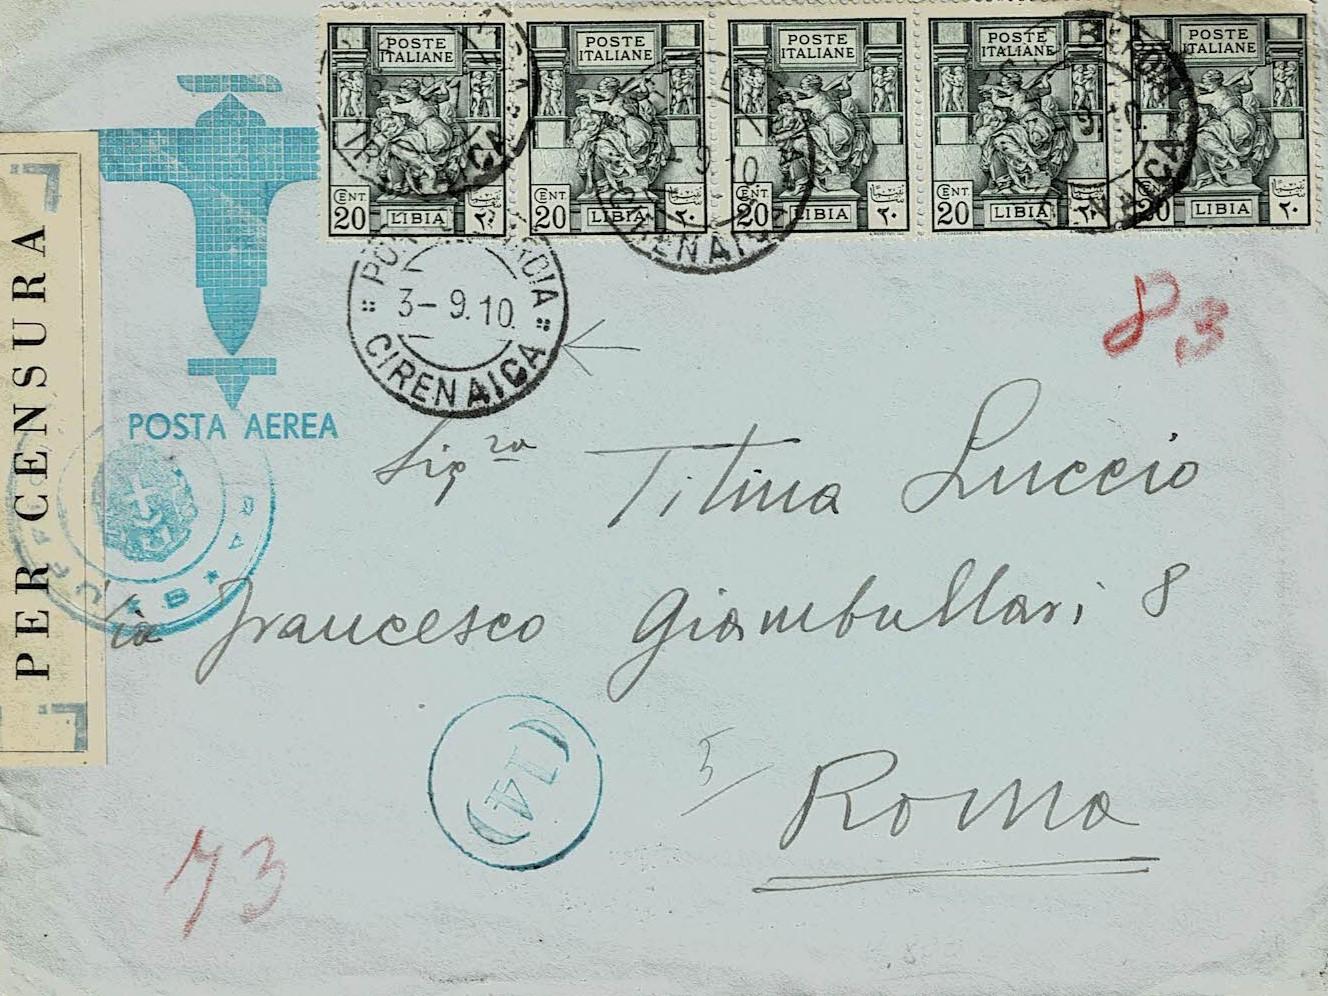 POSTE ITALIANE POSTE ITALIANE POSTE ITALIANE POSTE ITALIANE POSTE ITALIANE
CENT 20 LIBIA ٢٠ CENT 20 LIBIA ٢٠ CENT 20 LIBIA ٢٠ CENT 20 LIBIA ٢٠ CENT 20 LIBIA ٢٠
3-9.10.
CIRENAICA
CIRENAICA
PER CENSURA
POSTA AEREA
83
Sigra Titina Luccio
Via Francesco Giambullari 8
5
Roma
14
73